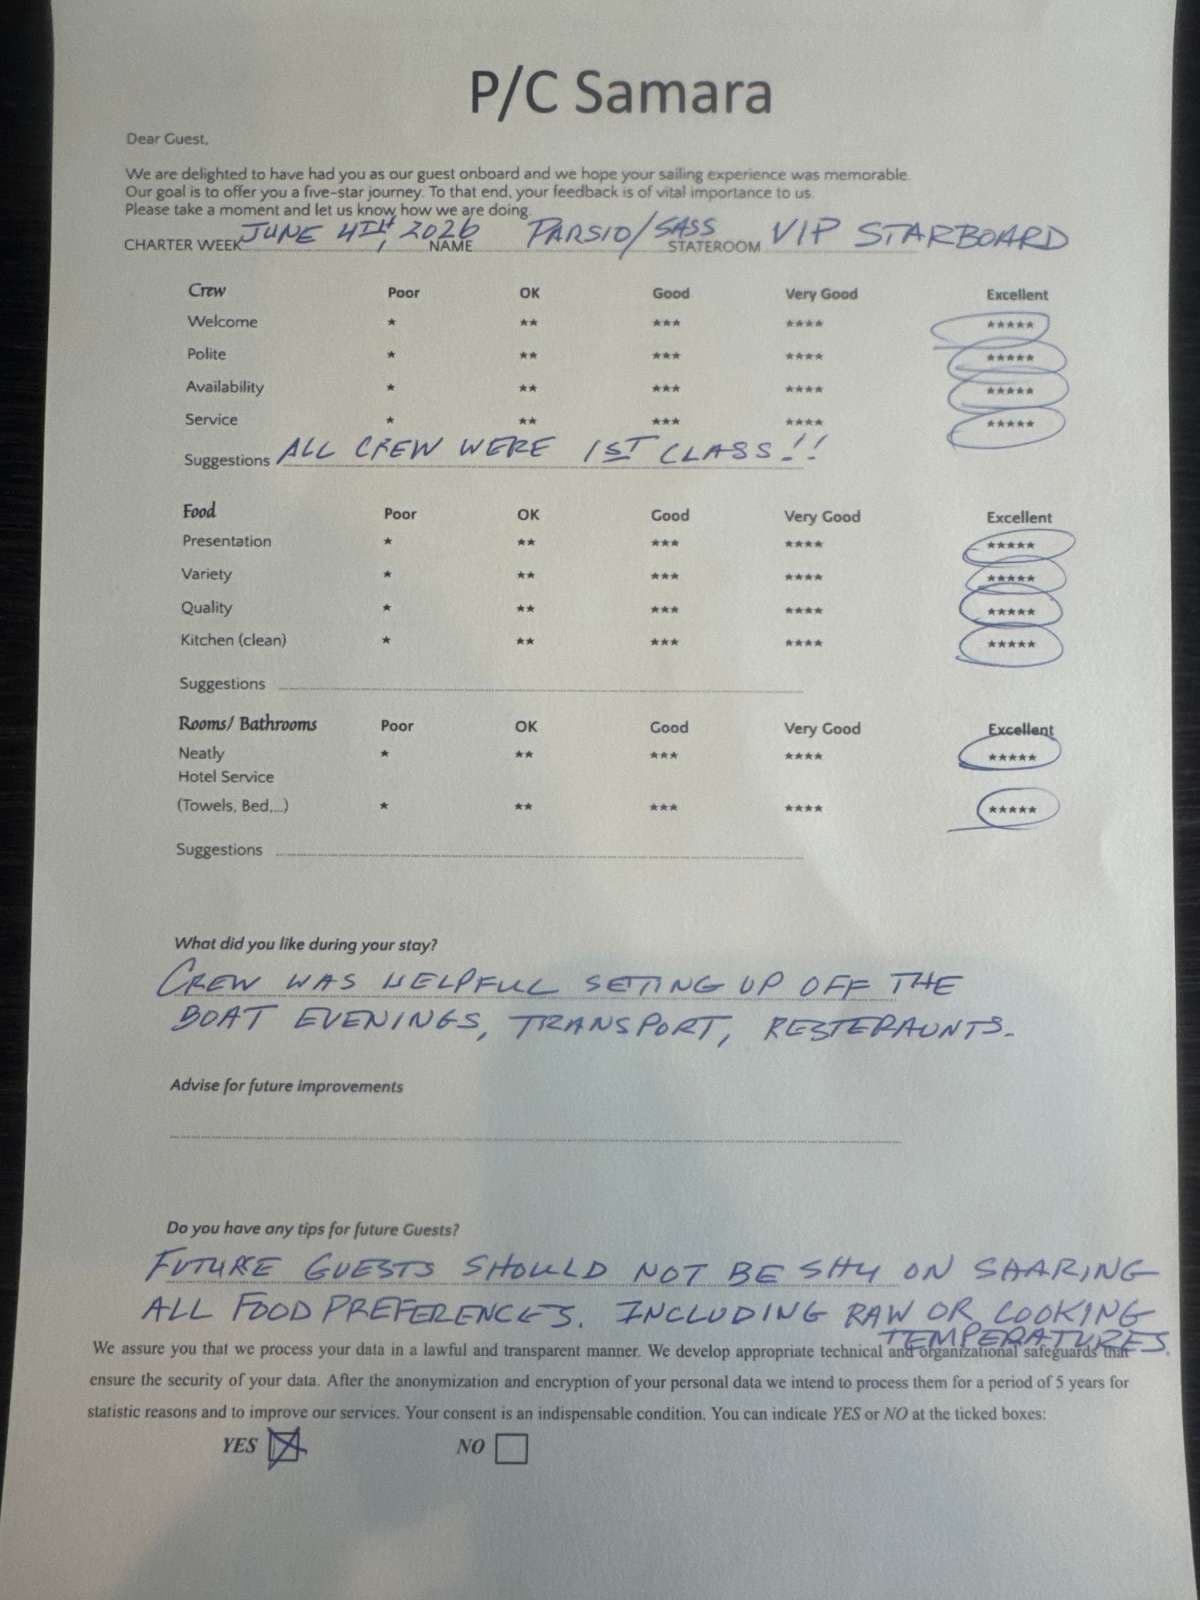 P/C Samara
Dear Guest,
We are delighted to have had you as our guest onboard and we hope your sailing experience was memorable.
Our goal is to offer you a five-star journey. To that end, your feedback is of vital importance to us.
Please take a moment and let us know how we are doing.
CHARTER WEEK JUNE 4TH, 2026 NAME PARSIO/SASS STATEROOM VIP STARBOARD
Crew Poor OK Good Very Good Excellent
Welcome * ** *** **** *****
Polite * ** *** **** *****
Availability * ** *** **** *****
Service * ** *** **** *****
Suggestions ALL CREW WERE 1ST CLASS!!
Food Poor OK Good Very Good Excellent
Presentation * ** *** **** *****
Variety * ** *** **** *****
Quality * ** *** **** *****
Kitchen (clean) * ** *** **** *****
Suggestions
Rooms/ Bathrooms Poor OK Good Very Good Excellent
Neatly * ** *** **** *****
Hotel Service
(Towels, Bed,...) * ** *** **** *****
Suggestions
What did you like during your stay?
CREW WAS HELPFUL SETTING UP OFF THE
BOAT EVENINGS, TRANSPORT, RESTERAUNTS.
Advise for future improvements
Do you have any tips for future Guests?
FUTURE GUESTS SHOULD NOT BE SHY ON SHARING
ALL FOOD PREFERENCES. INCLUDING RAW OR COOKING
TEMPERATURES.
We assure you that we process your data in a lawful and transparent manner. We develop appropriate technical and organizational safeguards that
ensure the security of your data. After the anonymization and encryption of your personal data we intend to process them for a period of 5 years for
statistic reasons and to improve our services. Your consent is an indispensable condition. You can indicate YES or NO at the ticked boxes:
YES NO